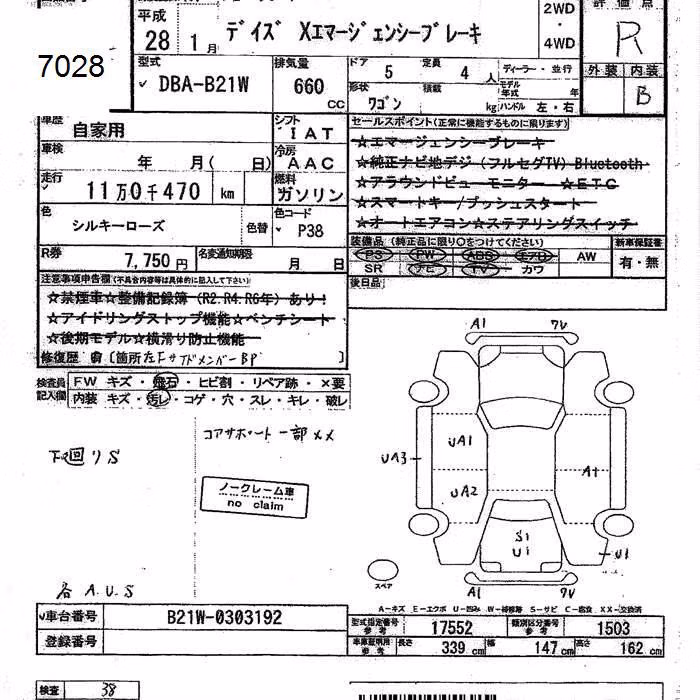 7028
平成 28 1月
デイズ Xエマージェンシーブレーキ
2WD・4WD
評価点 R
型式 DBA-B21W
排気量 660 CC
ドア 5 定員 4 人
形状 ワゴン 積載 kg
ディーラー・並行
モデル年式 年
ハンドル 左・右
外装 内装 B
車歴 自家用
シフト IAT
車検 年 月( 日)
冷房 AAC
走行 11万0千470 km
燃料 ガソリン
色 シルキーローズ 色替
色コード P38
R券 7,750円 名変通知期限 月 日
セールスポイント(正常に機能するものに限ります)
☆エマージェンシーブレーキ
☆純正ナビ地デジ(フルセグTV) Bluetooth
☆アラウンドビューモニター ☆ETC
☆スマートキー/プッシュスタート
☆オートエアコン☆ステアリングスイッチ
装備品(純正品に限り○をつけてください) 新車保証書
PS PW ABS エアB AW 有・無
SR ナビ TV カワ
後日品
注意事項申告欄(不具合内容等は具体的に記入して下さい)
☆禁煙車☆整備記録簿(R2.R4.R6年)あり!
☆アイドリングストップ機能☆ベンチシート
☆後期モデル☆横滑り防止機能
修復歴 有 [箇所 左Fサイドメンバー BP ]
検査員記入欄
FW キズ・飛石・ヒビ割・リペア跡・×要
内装 キズ・汚レ・コゲ・穴・スレ・キレ・破レ
コアサポート一部××
下回りS
ノークレーム車
no claim
各 A.U.S
A1 7V
UA1
UA3
UA2
A1
S1
U1
U1
A1 7V
スペア
A-キズ E-エクボ U-凹み W-補修跡 S-サビ C-腐食 XX-交換済
車台番号 B21W-0303192
登録番号
型式指定番号 参考 17552 類別区分番号 参考 1503
車庫証明用 参考 長さ 339 cm 幅 147 cm 高さ 162 cm
検査 38